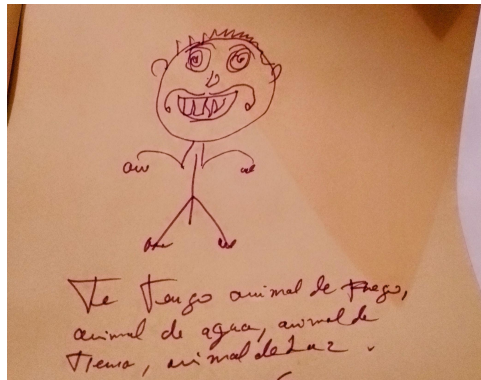 Te Tengo animal de fuego,
animal de agua, animal de
Tierra, animal de Luz.